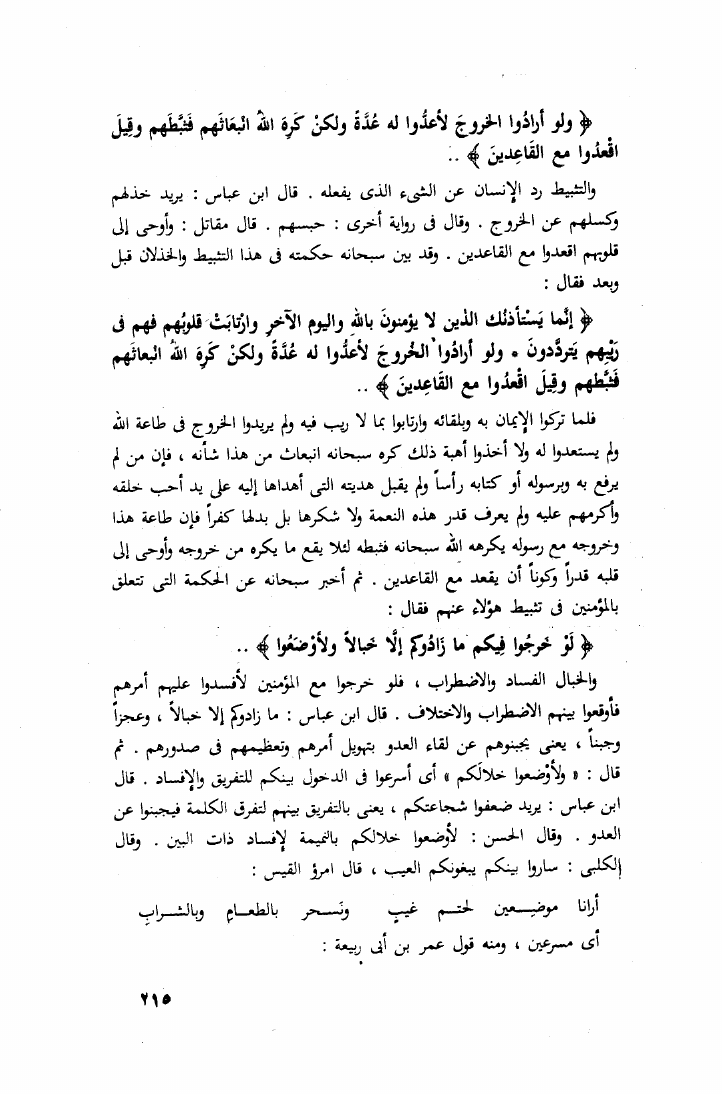 ﴿ ولو أرادُوا الخروجَ لأعدُّوا له عُدَّةً ولكنْ كَرِهَ اللهُ انْبعَاثَهم فَثبَّطَهم وقِيلَ
اقْعدُوا مع القَاعِدينَ ﴾ ..
والتثبيط رد الإنسان عن الشيء الذى يفعله . قال ابن عباس : يريد خذلهم
وكسلهم عن الخروج . وقال فى رواية أخرى : حبسهم . قال مقاتل : وأوحى إلى
قلوبهم اقعدوا مع القاعدين . وقد بين سبحانه حكمته فى هذا التثبيط والخذلان قبل
وبعد فقال :
﴿ إنَّما يَسْتأذنُك الذين لا يؤمنونَ باللهِ واليوم الآخرِ وارْتابَتْ قلوبُهم فهم فى
رَيْبِهم يَتردَّدونَ • ولو أرادُوا الخُروجَ لأعدُّوا له عُدَّةً ولكنْ كَرِهَ اللهُ انْبعاثَهم
فَثبَّطهم وقِيلَ اقْعدُوا مع القَاعِدينَ ﴾ ..
فلما تركوا الإيمان به وبلقائه وارتابوا بما لا ريب فيه ولم يريدوا الخروج فى طاعة الله
ولم يستعدوا له ولا أخذوا أهبة ذلك كره سبحانه انبعاث من هذا شأنه ، فإن من لم
يرفع به وبرسوله أو كتابه رأساً ولم يقبل هديته التى أهداها إليه على يد أحب خلقه
وأكرمهم عليه ولم يعرف قدر هذه النعمة ولا شكرها بل بدلها كفراً فإن طاعة هذا
وخروجه مع رسوله يكرهه الله سبحانه فثبطه لئلا يقع ما يكره من خروجه وأوحى إلى
قلبه قدراً وكوناً أن يقعد مع القاعدين . ثم أخبر سبحانه عن الحكمة التى تتعلق
بالمؤمنين فى تثبيط هؤلاء عنهم فقال :
﴿ لَوْ خَرجُوا فِيكم ما زَادُوكمْ إلَّا خَبالاً ولأوْضَعُوا ﴾ ..
والخبال الفساد والاضطراب ، فلو خرجوا مع المؤمنين لأفسدوا عليهم أمرهم
فأوقعوا بينهم الاضطراب والاختلاف . قال ابن عباس : ما زادوكم إلا خبالاً ، وعجزاً
وجبناً ، يعنى يجبنوهم عن لقاء العدو بتهويل أمرهم وتعظيمهم فى صدورهم . ثم
قال : « ولأوْضعوا خلالَكم » أى أسرعوا فى الدخول بينكم للتفريق والإفساد . قال
ابن عباس : يريد ضعفوا شجاعتكم ، يعنى بالتفريق بينهم لتفرق الكلمة فيجبنوا عن
العدو . وقال الحسن : لأوضعوا خلالكم بالنميمة لإفساد ذات البين . وقال
الكلبى : ساروا بينكم يبغونكم العيب ، قال امرؤ القيس :
أرانا موضِـعين لحتـم غيبٍ ونَسـحر بالطعـامِ وبالشـرابِ
أى مسرعين ، ومنه قول عمر بن أبى ربيعة :
٢١٥